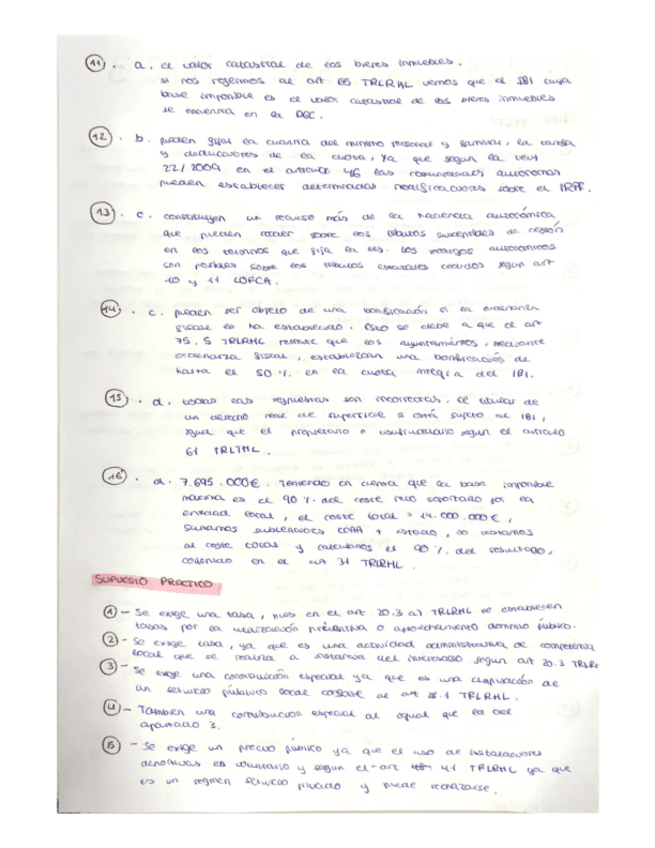 11. a. el valor catastral de los bienes inmuebles.
si nos regimos al art 65 TRLRHL vemos que el IBI cuya
base imponible es el valor catastral de los bienes inmuebles
se encuentra en la DGC.
12. b. pueden fijar la cuantía del mínimo personal y familiar, la tarifa
y deducciones de la cuota, ya que según la Ley
22/2009 en el artículo 46 las comunidades autónomas
pueden establecer determinadas modificaciones sobre el IRPF.
13. c. constituyen un recurso más de la hacienda autonómica
que pueden recaer sobre los tributos susceptibles de cesión
en los términos que fija la ley. Los recargos autonómicos
son posibles sobre los tributos estatales cedidos según art
10 y 11 LOFCA.
14. c. pueden ser objeto de una bonificación si la ordenanza
fiscal lo ha establecido. Esto se debe a que el art
75.5 TRLRHL permite que los ayuntamientos, mediante
ordenanza fiscal, establezcan una bonificación de
hasta el 50% en la cuota íntegra del IBI.
15. d. todas las respuestas son incorrectas. El titular de
un derecho real de superficie si está sujeto al IBI,
igual que el propietario o usufructuario según el artículo
61 TRLTHL.
16. d. 7.695.000€. Teniendo en cuenta que la base imponible
máxima es el 90% del coste real soportado por la
entidad local, el coste total = 14.000.000€,
sumamos subvenciones CCAA + estado, lo restamos
al coste total y calculamos el 90% del resultado,
contenido en el art 31 TRLRHL.
SUPUESTO PRACTICO
1 - Se exige una tasa, pues en el art 20.3 a) TRLRHL se establecen
tasas por la utilización privativa o aprovechamiento dominio público.
2 - Se exige tasa, ya que es una actividad administrativa de competencia
local que se realiza a instancia del interesado según art 20.3 TRLR
3 - Se exige una contribución especial ya que es una ampliación de
un servicio público local conforme al art 28.1 TRLRHL.
4 - También una contribución especial al igual que la del
apartado 3.
5 - Se exige un precio público ya que el uso de instalaciones
deportivas es voluntario y según el art 41 TRLRHL ya que
es un régimen servicio privado y puede rechazarse.